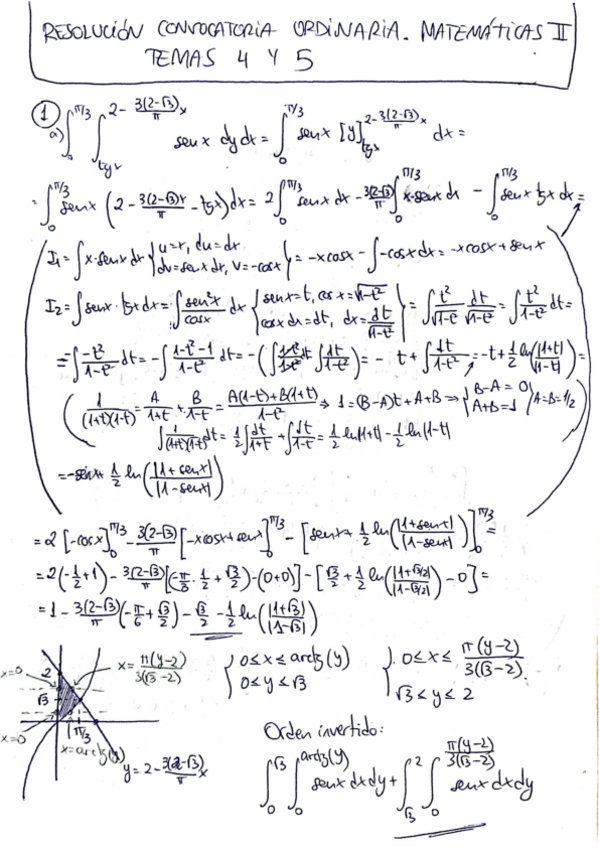 RESOLUCIÓN CONVOCATORIA ORDINARIA. MATEMÁTICAS II
TEMAS 4 Y 5
① a) ∫₀^{π/3} ∫_{tgx}^{2 - 3(2-√3)/π x} senx dy dx = ∫₀^{π/3} senx [y]_{tgx}^{2 - 3(2-√3)/π x} dx =
= ∫₀^{π/3} senx (2 - 3(2-√3)x/π - tgx) dx = 2∫₀^{π/3} senx dx - 3(2-√3)/π ∫₀^{π/3} x·senx dx - ∫₀^{π/3} senx tgx dx =
I₁ = ∫x·senx dx { u=x, du=dx ; dv=senx dx, v=-cosx } = -xcosx - ∫-cosx dx = -xcosx + senx
I₂ = ∫senx·tgx dx = ∫ sen²x/cosx dx { senx=t, cosx=√1-t² ; cosx dx=dt, dx=dt/√1-t² } = ∫ t²/√1-t² dt/√1-t² = ∫ t²/1-t² dt =
= -∫ -t²/1-t² dt = -∫ 1-t²-1/1-t² dt = -(∫ 1-t²/1-t² dt ∫ dt/1-t²) = - t + ∫ dt/1-t² = -t + 1/2 ln(|1+t|/|1-t|) =
( 1/(1+t)(1-t) = A/1+t + B/1-t = A(1-t)+B(1+t)/1-t² ⇒ 1=(B-A)t+A+B ⇒ { B-A=0 ; A+B=1 } A=B=1/2
∫ 1/(1+t)(1-t) dt = 1/2 ∫ dt/1+t + ∫ dt/1-t = 1/2 ln|1+t| - 1/2 ln|1-t| )
= -senx + 1/2 ln(|1+senx|/|1-senx|)
= 2[-cosx]₀^{π/3} - 3(2-√3)/π [-xcosx+senx]₀^{π/3} - [senx + 1/2 ln(|1+senx|/|1-senx|)]₀^{π/3} =
= 2(-1/2+1) - 3(2-√3)/π [(-π/3·1/2 + √3/2) - (0+0)] - [√3/2 + 1/2 ln(|1+√3/2|/|1-√3/2|) - 0] =
= 1 - 3(2-√3)/π (-π/6 + √3/2) - √3/2 - 1/2 ln(|1+√3|/|1-√3|)
x=0
2
√3
x=0
1
π/3
x=arctg(y)
x = π(y-2)/3(√3-2)
y = 2 - 3(2-√3)/π x
{ 0≤x≤arctg(y)
0≤y≤√3
{ 0≤x≤ π(y-2)/3(√3-2).
√3≤y≤2
Orden invertido:
∫₀^{√3} ∫₀^{arctg(y)} senx dx dy + ∫_{√3}^{2} ∫₀^{π(y-2)/3(√3-2)} senx dx dy